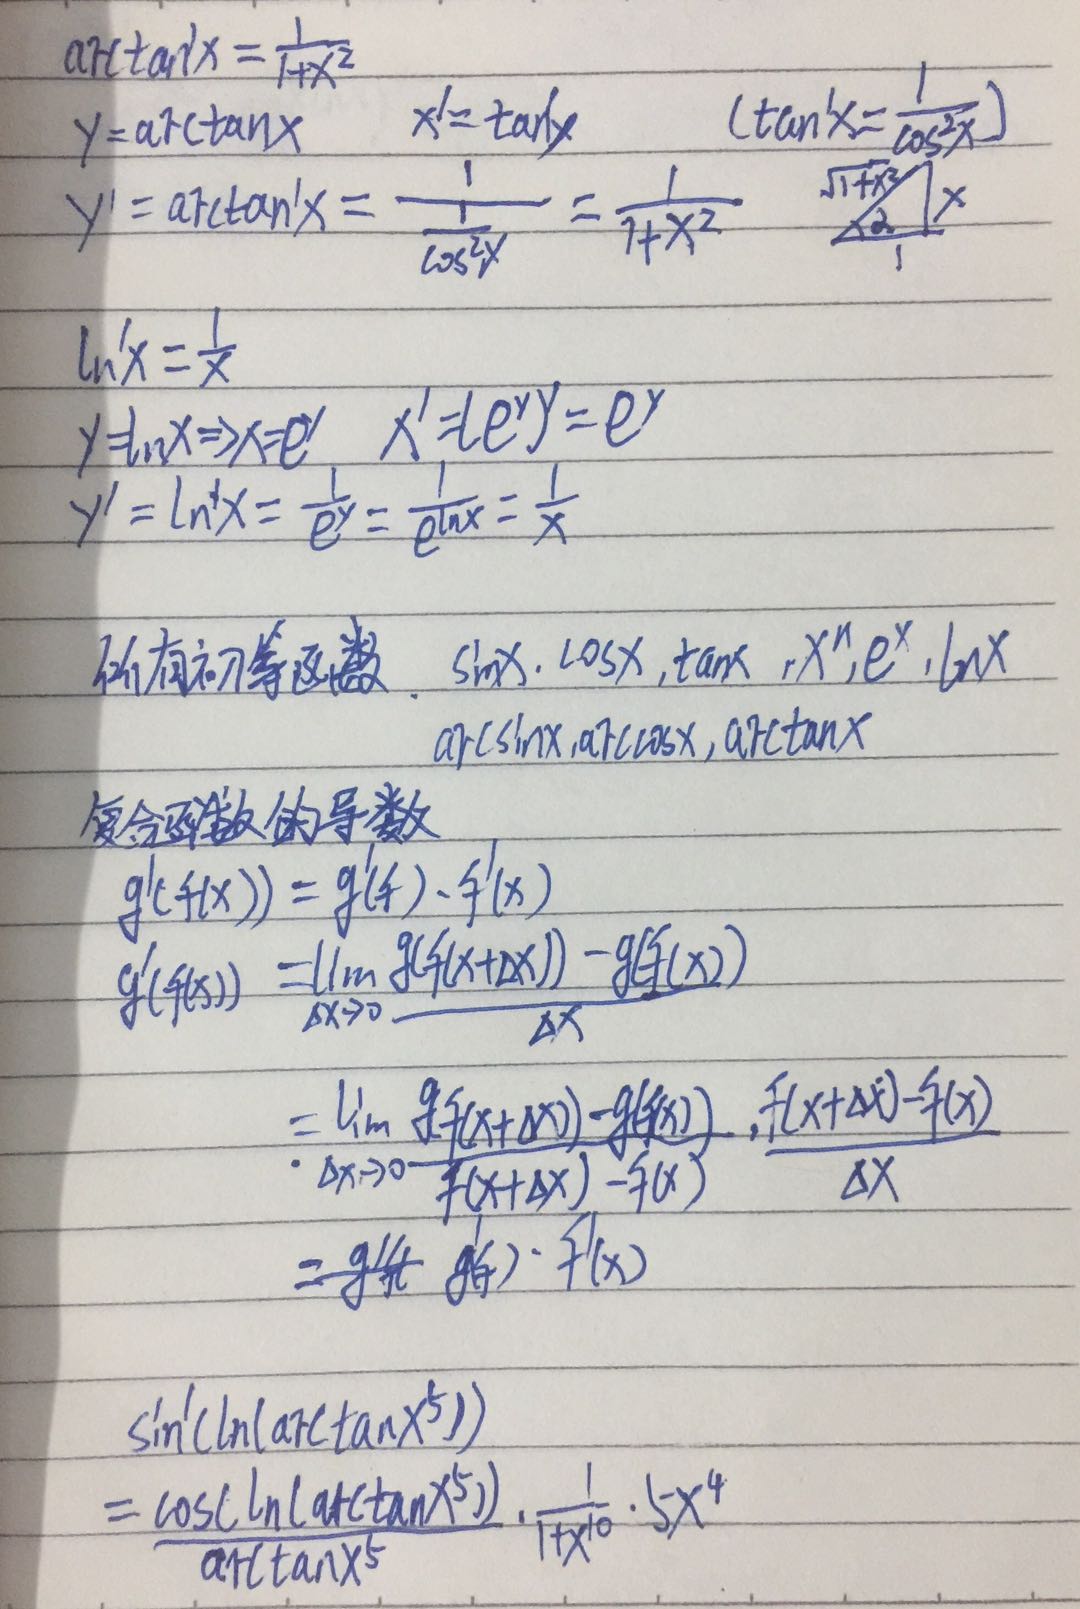 arctan'x = 1/(1+x²)
y = arctanx x' = tan'y (tan'x = 1/cos²x)
y' = arctan'x = 1/(1/cos²y) = 1/(1+x²) √(1+x²) x 1
ln'x = 1/x
y=lnx => x=e^y x' = (e^y)' = e^y
y' = ln'x = 1/e^y = 1/e^lnx = 1/x
所有初等函数. sinx. cosx, tanx, xⁿ, e^x, lnx
arcsinx, arccosx, arctanx
复合函数的导数
g'(f(x)) = g'(f)·f'(x)
g'(f(x)) = lim Δx→0 (g(f(x+Δx)) - g(f(x)))/Δx
= lim Δx→0 (g(f(x+Δx)) - g(f(x)))/(f(x+Δx) - f(x)) · (f(x+Δx) - f(x))/Δx
= g'(f)·f'(x)
sin'(ln(arctanx⁵))
= cos(ln(arctanx⁵))/arctanx⁵ · 1/(1+x¹⁰) · 5x⁴